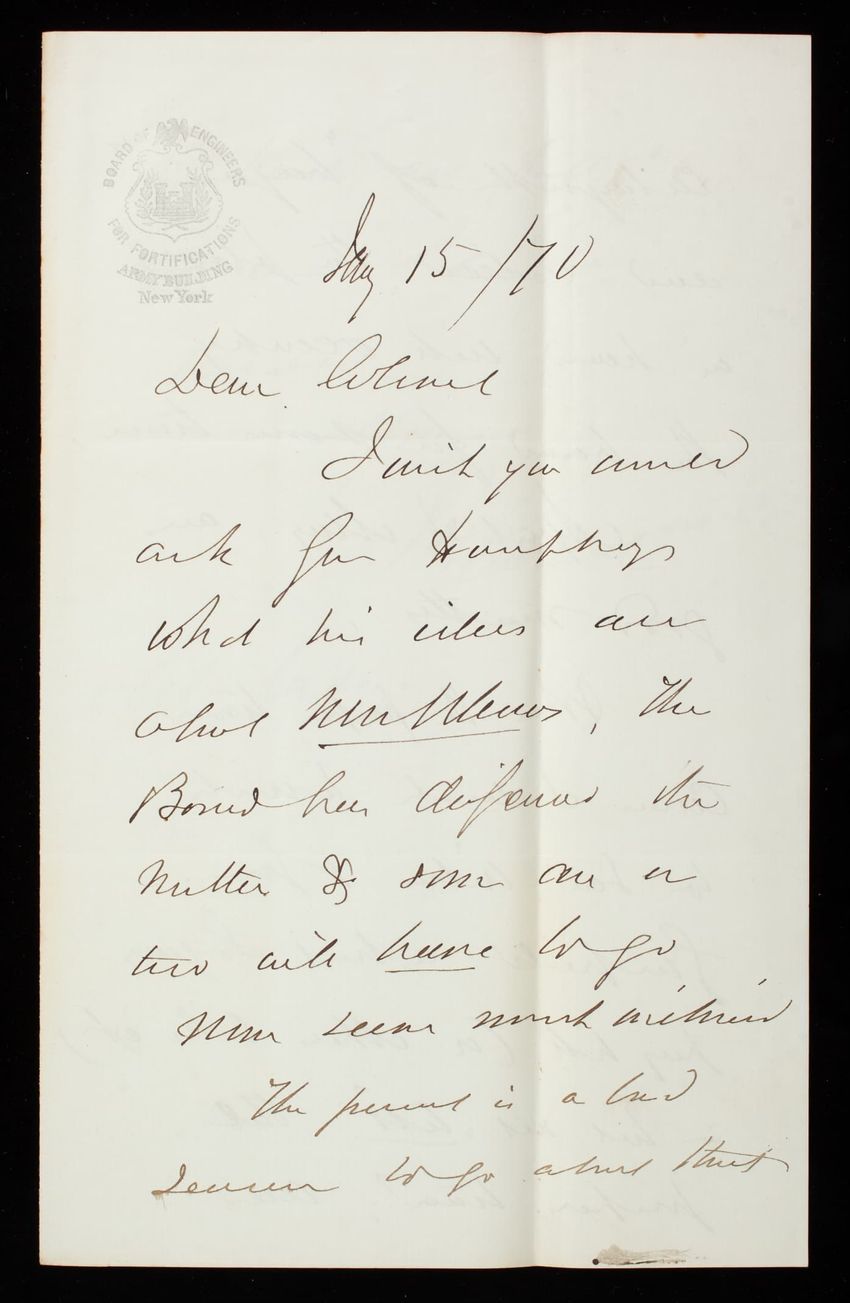 BOARD OF ENGINEERS
FOR FORTIFICATIONS
ARMY BUILDING
New York
15/70
Dear Colonel
I wish you would
ask Gen Humphreys
what his ideas are
about New Orleans, The
Board has deferred the
matter & some one or
two will have to go
The present is a bad
season to go about that